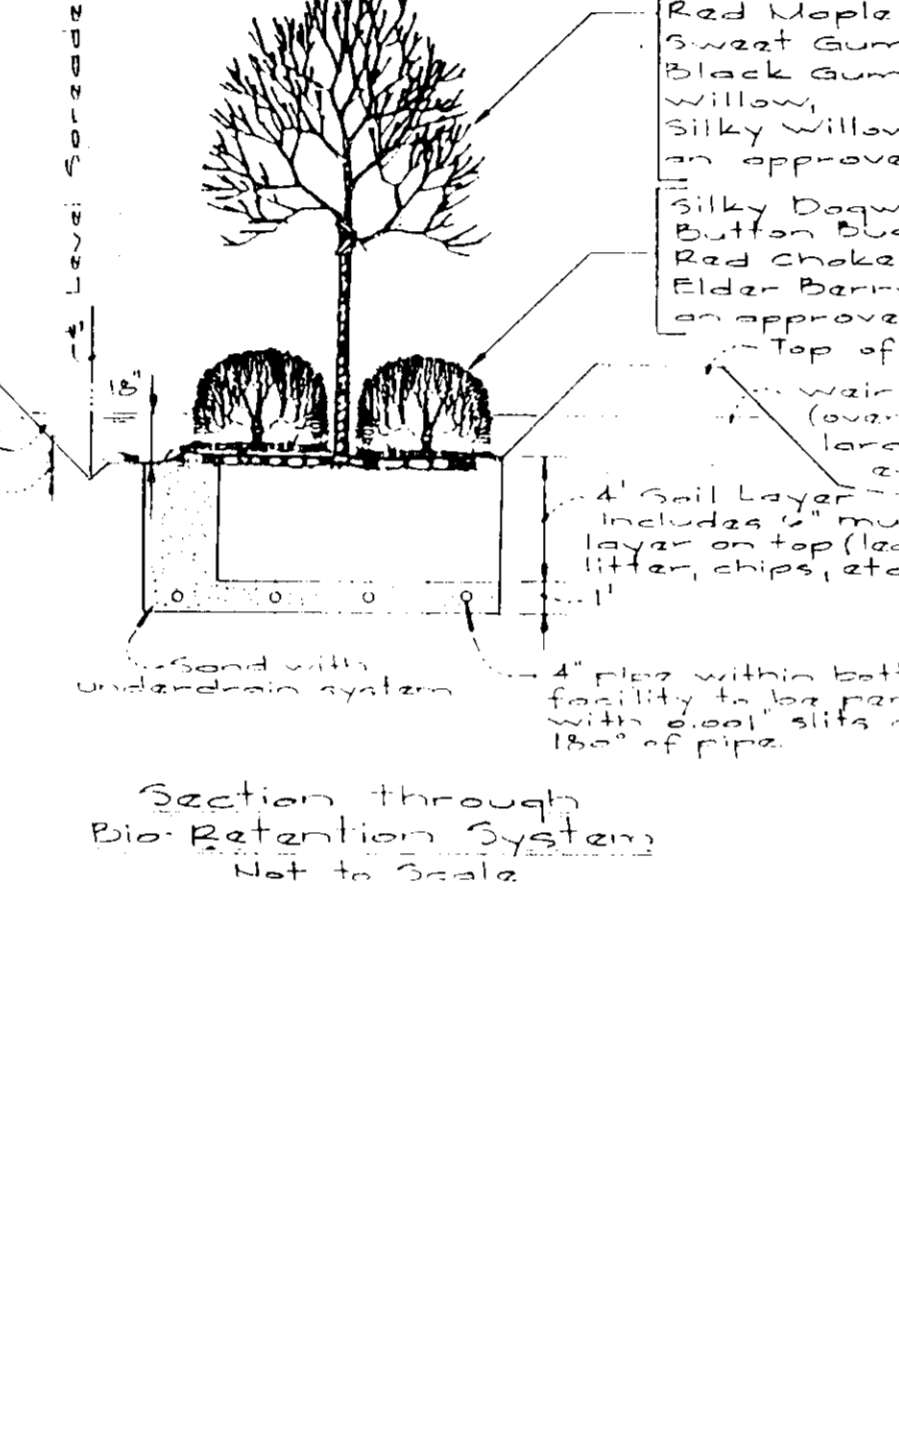 Red Maple
Sweet Gum
Black Gum
Willow,
Silky Willow
an approve
Silky Dogw
Button Bu
Red Choke
Elder Berr
an approve
Top of
weir
(over
larg
Level Spreade
18"
4' Soil Layer
includes 6" mu
layer on top (lea
litter, chips, etc
1'
Sand with
underdrain system
4" pipe within bott
facility to be per
with 0.001" slits
180° of pipe.
Section through
Bio-Retention System
Not to Scale